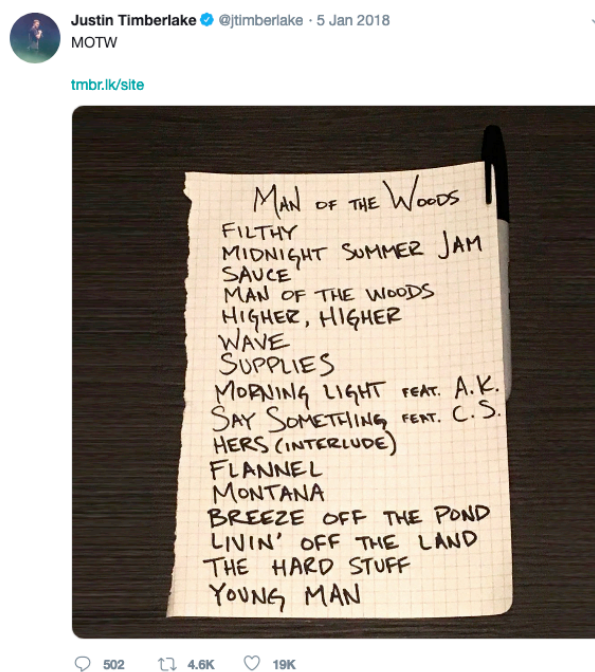 Justin Timberlake @jtimberlake · 5 Jan 2018
MOTW
tmbr.lk/site
MAN OF THE WOODS
FILTHY
MIDNIGHT SUMMER JAM
SAUCE
MAN OF THE WOODS
HIGHER, HIGHER
WAVE
SUPPLIES
MORNING LIGHT FEAT. A.K.
SAY SOMETHING FEAT. C.S.
HERS (INTERLUDE)
FLANNEL
MONTANA
BREEZE OFF THE POND
LIVIN' OFF THE LAND
THE HARD STUFF
YOUNG MAN
502 4.6K 19K